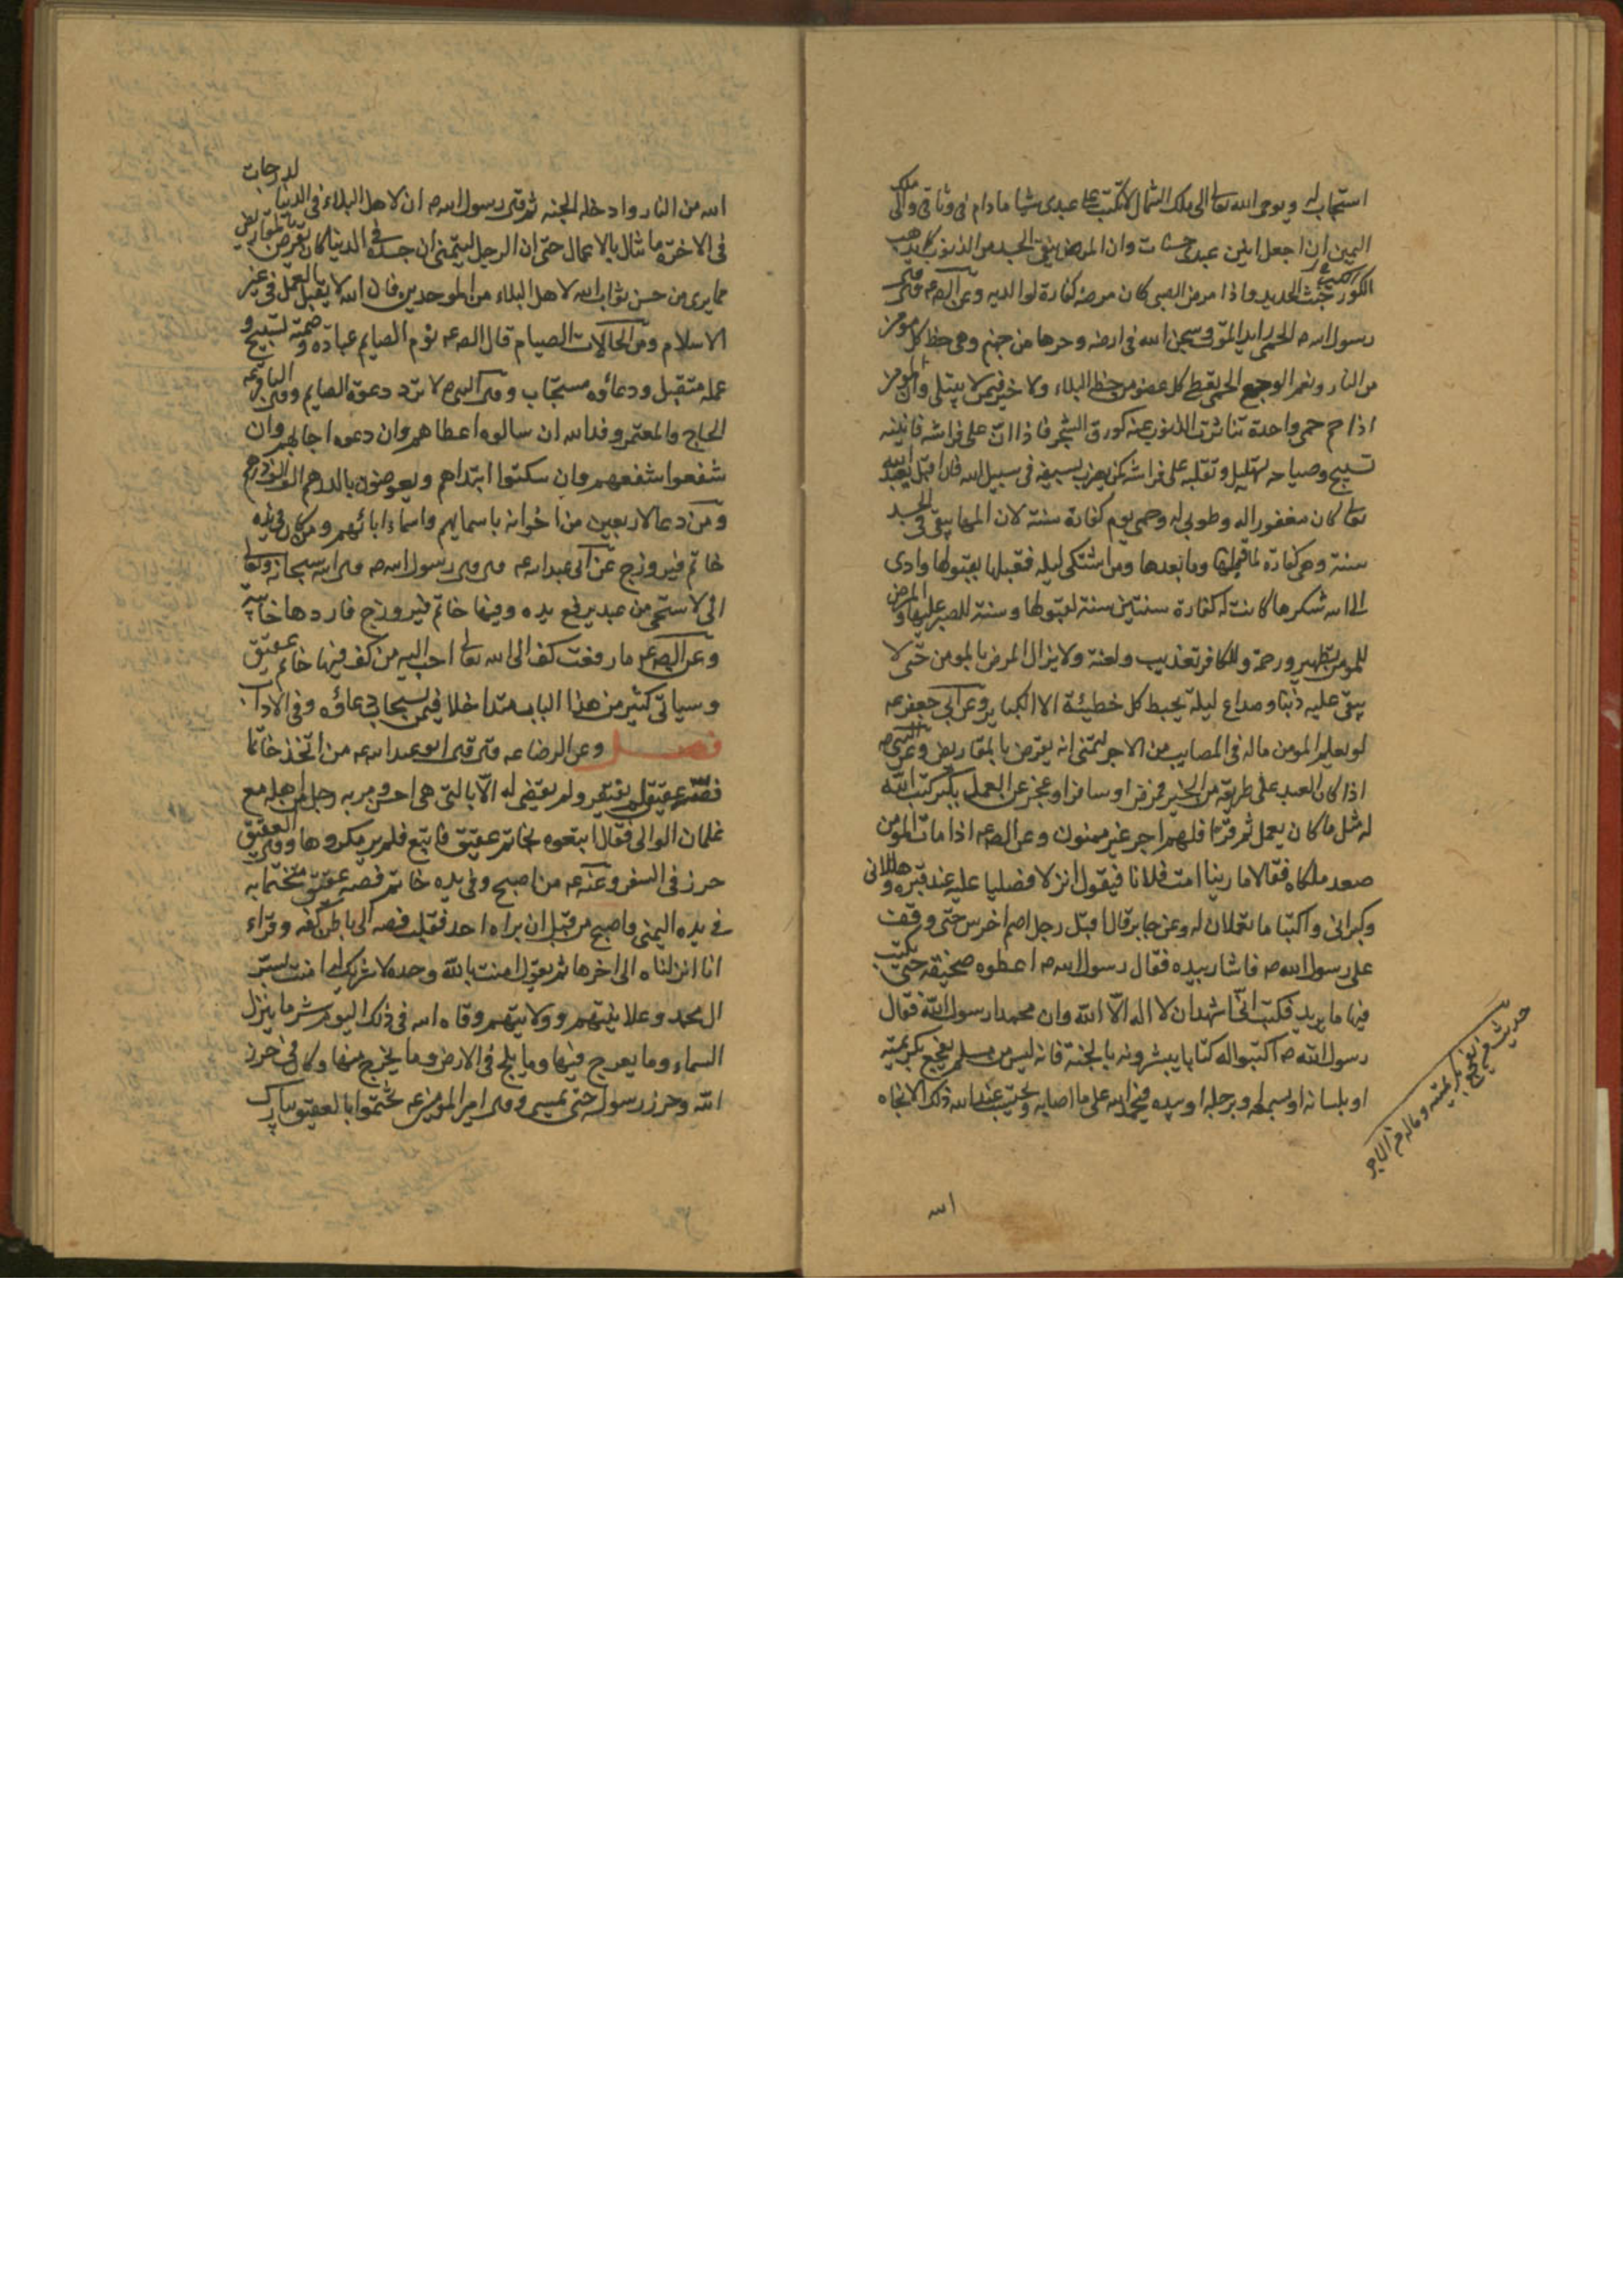 استجاب له ويوحى الله تعالى الى ملك الشمال لا تكتب على عبدى شيا مادام فى وثاقى والى ملك
اليمين ان اجعل انين عبدى حسنات وان المرض ينقى الجسد من الذنوب كما يذهب
الكير خبث الحديد واذا مرض الصبى كان مرضه كفارة لوالديه وعن الصه عه قال
رسول الله صه الحمى رايد الموت وسجن الله فى ارضه وحرها من جهنم وهى حظ كل مومن
من النار ونعم الوجع الحمى يعطى كل عضو من حظ البلاء ولا خير فيمن لا يبتلى وان المومن
اذا حم حمى واحدة تناثرت الذنوب عنه كورق الشجر فاذا ان على فراشه فانينه
تسبيح وصياحه تهليل وتقلبه على فراشه كمن يضرب بسيفه فى سبيل الله فان اقبل يعبد الله
تعالى كان مغفورا له وطوبى له وحمى يوم كفارة سنة لان المها يبقى فى الجسد
سنة وهى كفارة لما قبلها وما بعدها ومن اشتكى ليله فقبلها بقبولها وادى
الى الله شكرها كانت له كفارة سنتين سنة لقبولها وسنة للصبر عليها والمرض
للمومن تطهير ورحمة وللكافر تعذيب ولعنة ولا يزال المرض بالمومن حتى لا
يبقى عليه ذنبا وصداع ليلة يحبط كل خطيئة الا الكباير وعن ابى جعفر عه
لو يعلم المومن ماله فى المصايب من الاجر لتمنى انه يقرض بالمقاريض وعن النبى صه
اذا كان العبد على طريقه من الخير فمرض او سافر او عجز عن العمل بكبر كتب الله
له مثل ما كان يعمل ثم قرا فلهم اجر غير ممنون وعن الصه عه اذا مات المومن
صعد ملكاه فقالا يا ربنا امت فلانا فيقول انزلا فصليا عليه عند قبره وهللانى
وكبرانى واكتبا ما تعملان له وعن جابر قال اقبل رجل اصم اخرس حتى وقف
على رسول الله صه فاشار بيده فقال رسول الله صه اعطوه صحيفة حتى يكتب
فيها ما يريد فكتب انى اشهد ان لا اله الا الله وان محمدا رسول الله فقال
رسول الله صه اكتبوا له كتابا يبشرونه بالجنة فانه ليس من مسلم يفجع بكريمته
او بلسانه او بسمعه او برجله او بيده فيحمد الله على ما اصابه ويحتسب عند الله ذلك الا نجاه
حديث من يفجع بكريمته وماله من الاجر
الله
الله من النار وادخله الجنه ثم قال رسول الله صه ان لاهل البلاء فى الدنيا لدرجات
فى الاخرة ما تنال بالاعمال حتى ان الرجل ليتمنى ان جسده فى الدنيا كان يقرض بالمقاريض
مما يرى من حسن ثواب الله لاهل البلاء من الموحدين فان الله لا يقبل العمل فى غير
الاسلام ومن الحالات الصيام قال الصه عه نوم الصايم عبادة وصمته تسبيح و
عمله متقبل ودعاؤه مستجاب وقال النبى صه لا ترد دعوة الصايم وقال الباقر عه
الحاج والمعتمر وفد الله ان سالوه اعطاهم وان دعوه اجابهم وان
شفعوا شفعهم وان سكتوا ابتداهم ويعوضون بالدرهم الف الف درهم
ومن دعا لاربعين من اخوانه باسمايهم واسماء ابائهم ومن كان فى يده
خاتم فيروزج عن ابى عبد الله عه قال قال رسول الله صه قال الله سبحانه وتعالى
انى لاستحى من عبد يرفع يده وفيها خاتم فيروزج فاردها خائبة
وعن الصه عه ما رفعت كف الى الله تعالى احب اليه من كف فيها خاتم عقيق
وسياتى كثير من هذا الباب متداخلا فيمن يستجاب دعاؤه وفى الاداب
فصل وعن الرضا عه قال قال ابو عبد الله عه من اتخذ خاتما
فصه عقيق لم يفتقر ولم يقض له الا بالتى هى احسن ومر به رجل من اهله مع
غلمان الوالى فقال اتبعوه بخاتم عقيق فاتبع فلم ير مكروها وقال العقيق
حرز فى السفر وعنه عه من اصبح وفى يده خاتم فصه عقيق متختما به
فى يده اليمنى واصبح من قبل ان يراه احد فقلب فصه الى باطن كفه وقراء
انا انزلناه الى اخرها ثم يقول امنت بالله وحده لا شريك له امنت بسر
ال محمد وعلانيتهم وولايتهم وقاه الله فى ذلك اليوم شر ما ينزل
السماء وما يعرج فيها وما يلج فى الارض وما يخرج منها وكان فى حرز
الله وحرز رسوله حتى يمسى وقال امير المومنين عه تختموا بالعقيق يبارك